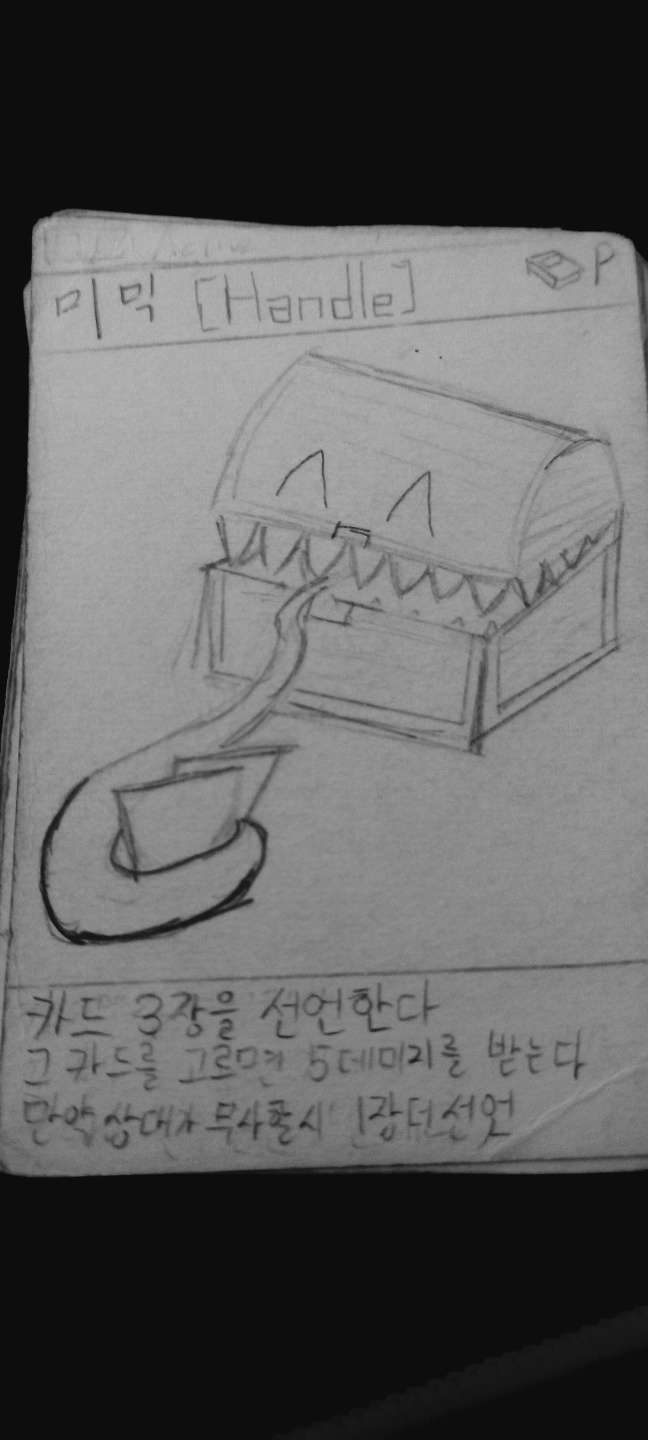 Active
미믹 [Handle] P
카드 3장을 선언한다
그 카드를 고르면 5데미지를 받는다
만약 상대가 무사할시 1장더선언